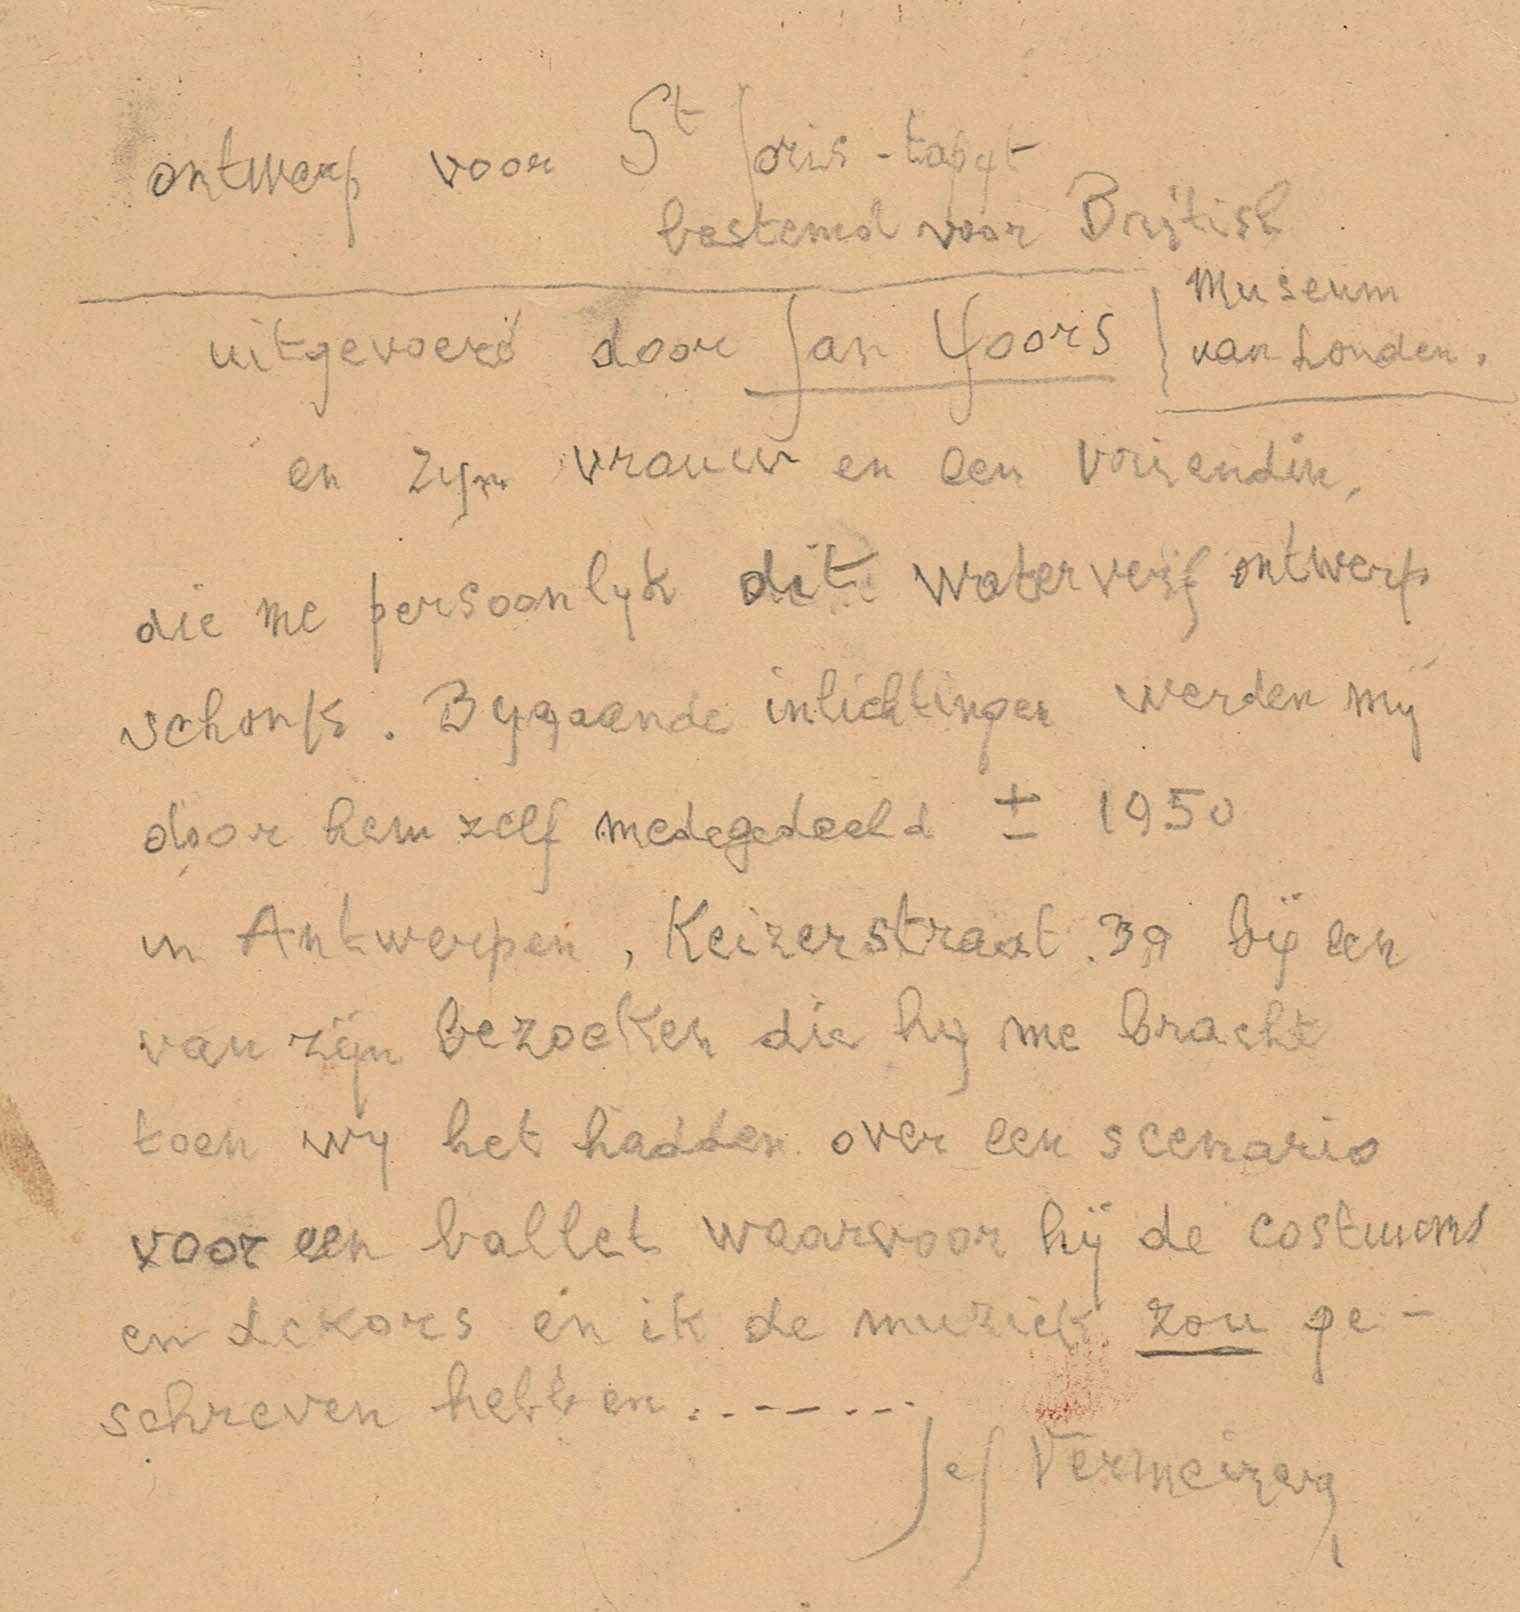 ontwerp voor St Joris-tapyt
bestemd voor British
Museum
van Londen.
uitgevoerd door Jan Yoors
en zyn vrouw en een vriendin,
die me persoonlyk dit waterverf ontwerp
schonk. Bygaande inlichtingen werden mij
door hem zelf medegedeeld ± 1950
in Antwerpen, Keizerstraat 39 bij een
van zijn bezoeken die hy me bracht
toen wy het hadden over een scenario
voor een ballet waarvoor hij de costuums
en dekors en ik de muziek zou ge-
schreven hebben.......
Jef